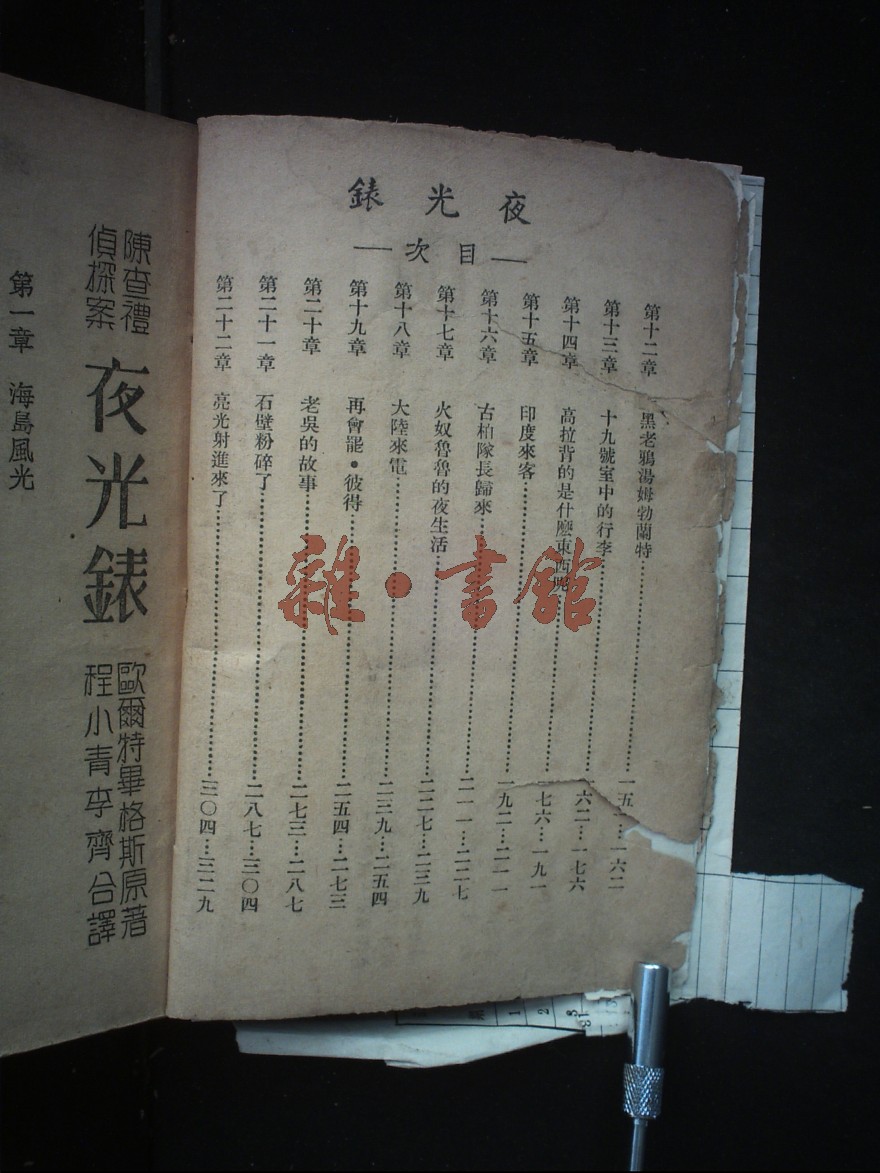 夜光錶
目次
第十二章 黑老鴉湯姆勃蘭特 一六二
第十三章 十九號室中的行李 一六二…一七六
第十四章 高拉背的是什麽東西呢 一七六…一九一
第十五章 印度來客 一九二…二一一
第十六章 古柏隊長歸來 二一一…二二七
第十七章 火奴魯魯的夜生活 二二七…二三九
第十八章 大陸來電 二三九…二五四
第十九章 再會罷•彼得 二五四…二七三
第二十章 老吳的故事 二七三…二八七
第二十一章 石壁粉碎了 二八七…三〇四
第二十二章 亮光射進來了 三〇四…三二九
陳查禮
偵探案
夜光錶
歐爾特畢格斯原著
程小青李齊合譯
第一章 海島風光
雜·書館
1
2
3